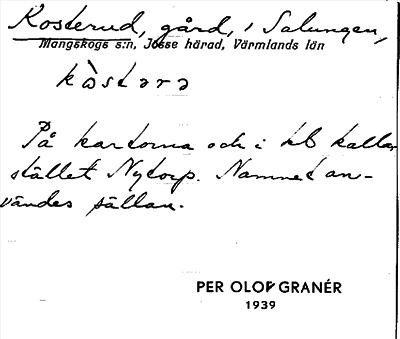 Kosterud, gård, i Salungen,
Mangskogs s:n, Jösse härad, Värmlands län
kòstərə
På kartorna och i kb kallas
stället Nytorp. Namnet an-
vändes sällan.
PER OLOF GRANÉR
1939